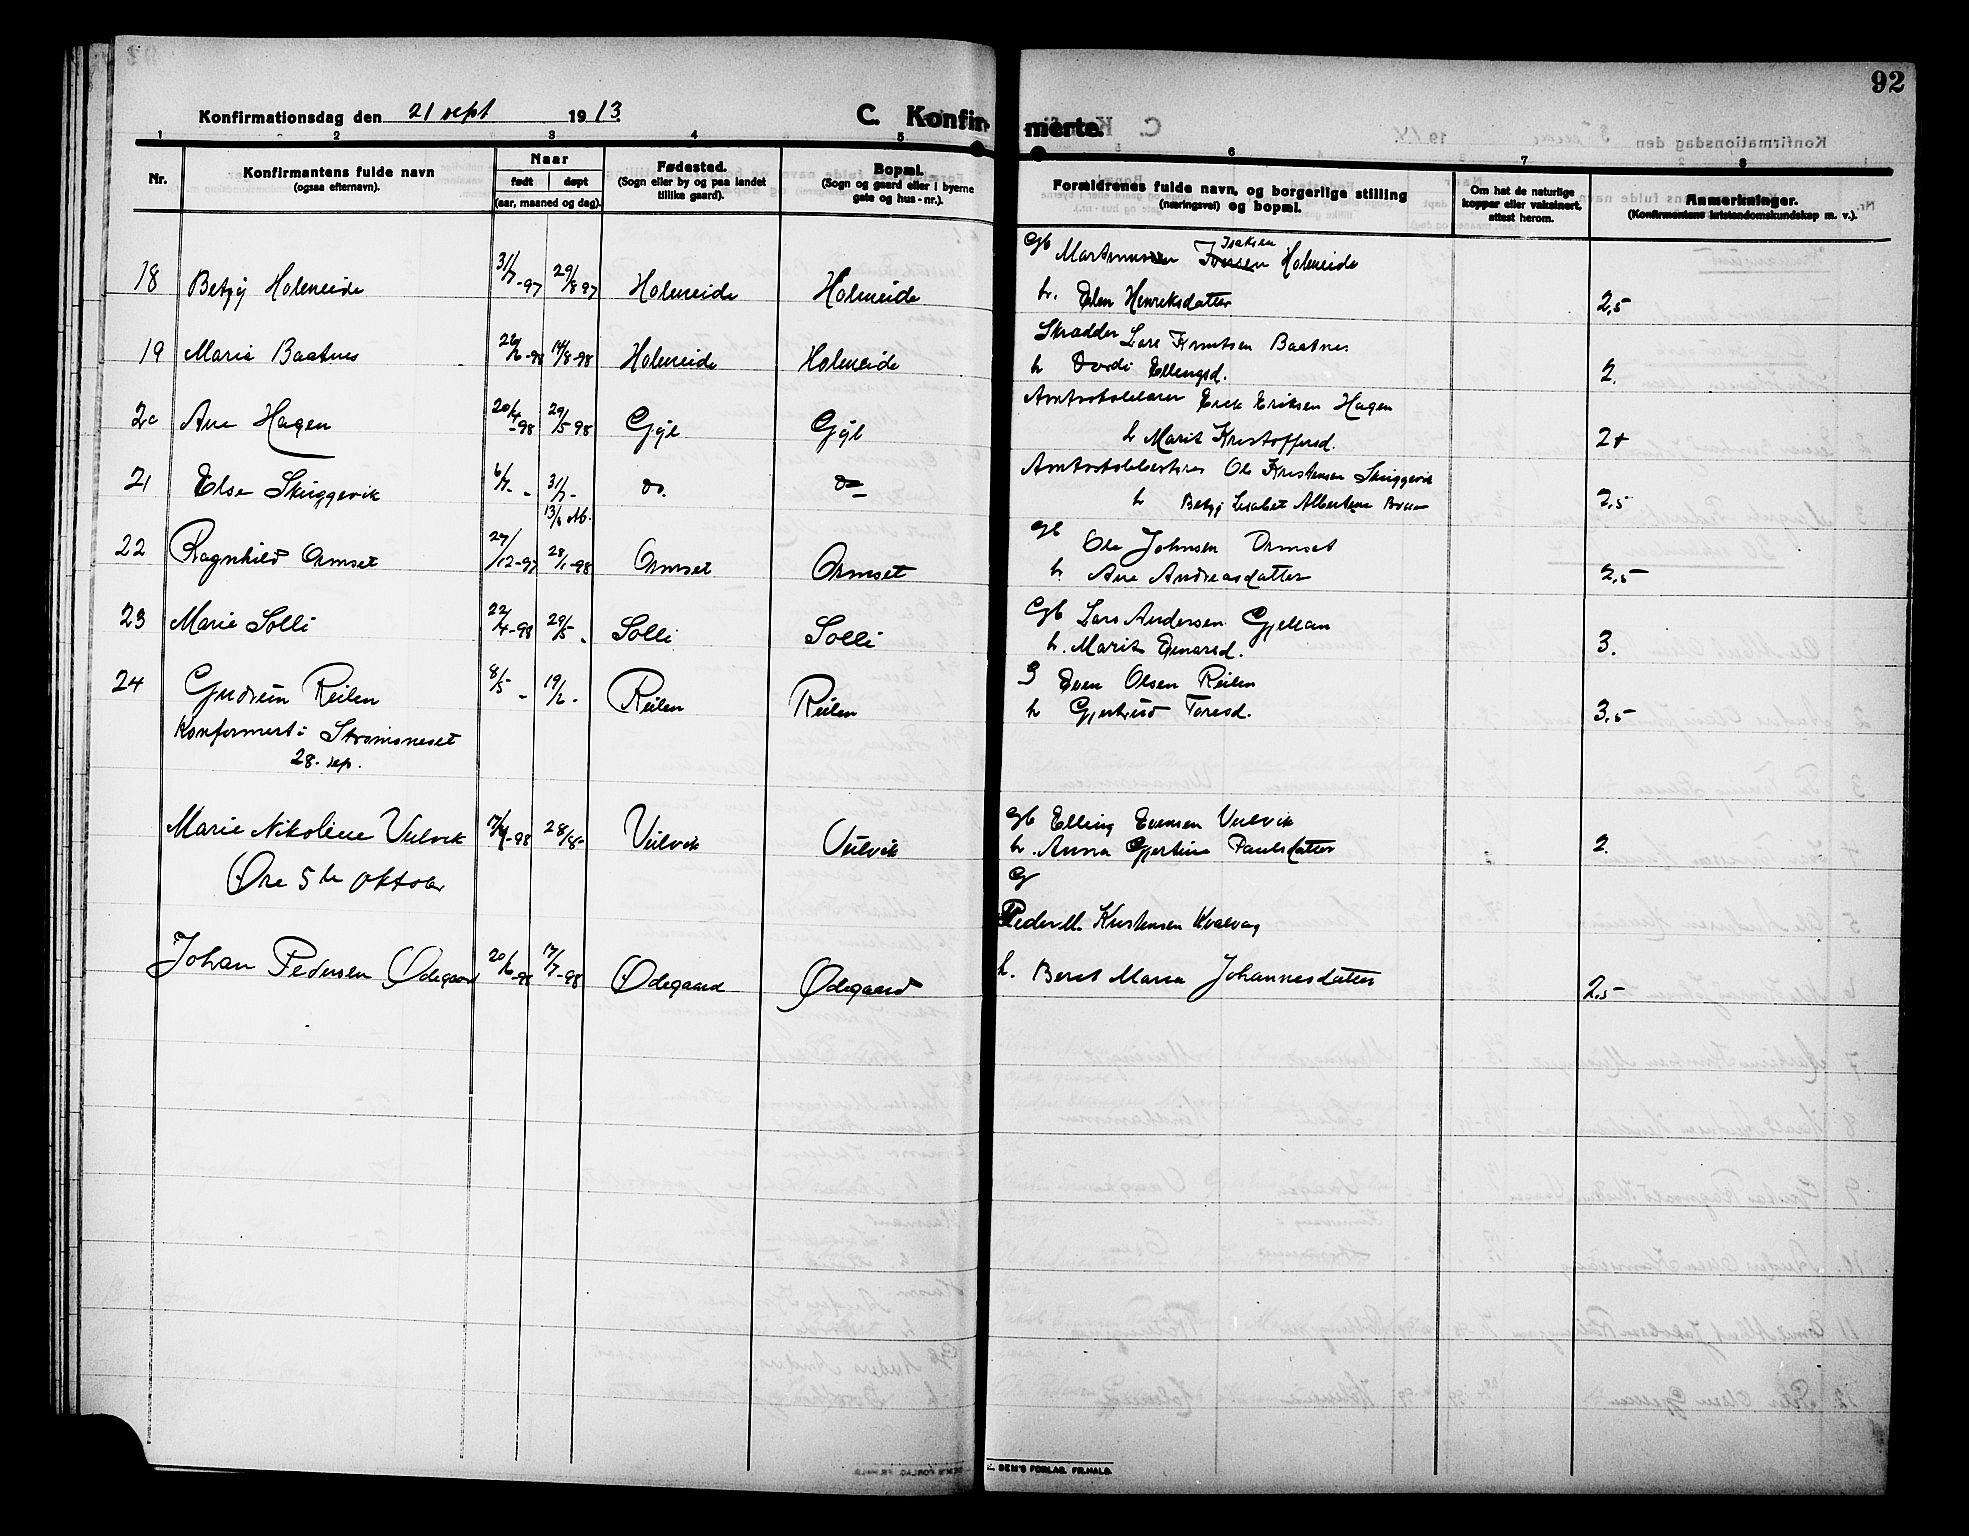 92
Konfirmationsdag den 21 sept 1913.
C. Konfirmerte.
1 2 3 4 5 6 7 8
Nr.
Konfirmantens fulde navn
(ogsaa efternavn).
Naar
født døpt
(aar, maaned og dag).
Fødested.
(Sogn eller by og paa landet
tillike gaard).
Bopæl.
(Sogn og gaard eller i byerne
gate og hus-nr.).
Forældrenes fulde navn, og borgerlige stilling
(næringsvei) og bopæl.
Om hat de naturlige
kopper eller vaksinert,
attest herom.
Anmerkninger.
(Konfirmantens kristendomskundskap m. v.).
Isaksen
Gb Holmeide
18 31/7-97 29/8 97 Holmeide Holmeide
h. Elen Henriksdatter 2,5
Skrædder Lars Knutsen Baatnes
19 Marie Baatnes 98 14/8-98 Holmeide Holmeide
h Ellingsd. 2.
Erik Eriksen Hagen
20 Ane Hagen 20/4-98 29/5 98 Gyl Gyl
h Marit Kristoffersd. 2+
Ole Kristensen Skuggevik
21 Else Skuggevik 6/7- - 31/7- do. do
h Betzy Lisabet Albertine 2,5
13/8
Gb Ole Johnsen Ormset
22 Ragnhild Ormset 27/12-97 28/1-98 Ormset Ormset
h. Ane Andreasdatter 2,5
Gb Lars Andersen Gjellan
23 Marie Solli 22/4-98 29/5- Solli Solli
h. Marit Einarsd. 3.
G Even Olsen Reilen
24 Gudrun Reilen 8/5 - 19/6 - Reilen Reilen
h Gjertrud Toresd. 3,5
Konfermert i Stromsneset
28. sep.
Gb Elling Evensen Veilvik
Marie Nikoline Veilvik 98 28/8- Veilvik Veilvik
h. Anna Gjertine Paulsdatter 2.
Øre 5te oktober
G
Peder M. Kristensen Kvalvag
Johan Pedersen Ødegaard 20/6-98 17/7-98 Ødegaard Ødegaard
h. Beret Maria Johannesdatter 2,5
SEM'S FORLAG. FR.HALD.